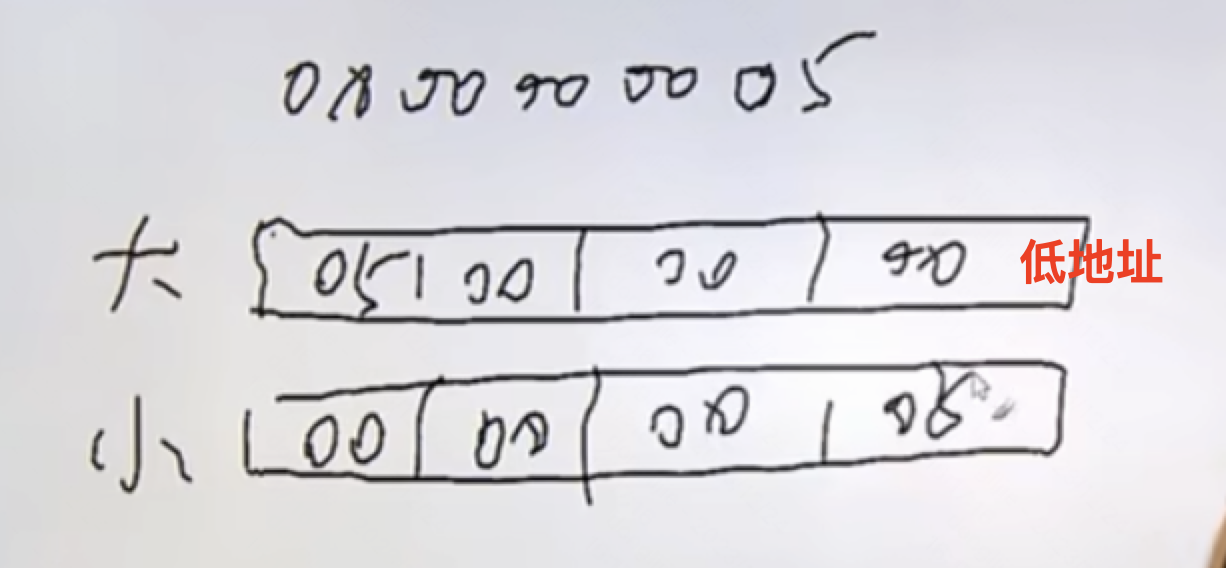 0x 00 00 00 05
大 05 00 00 00 低地址
小 00 00 00 05